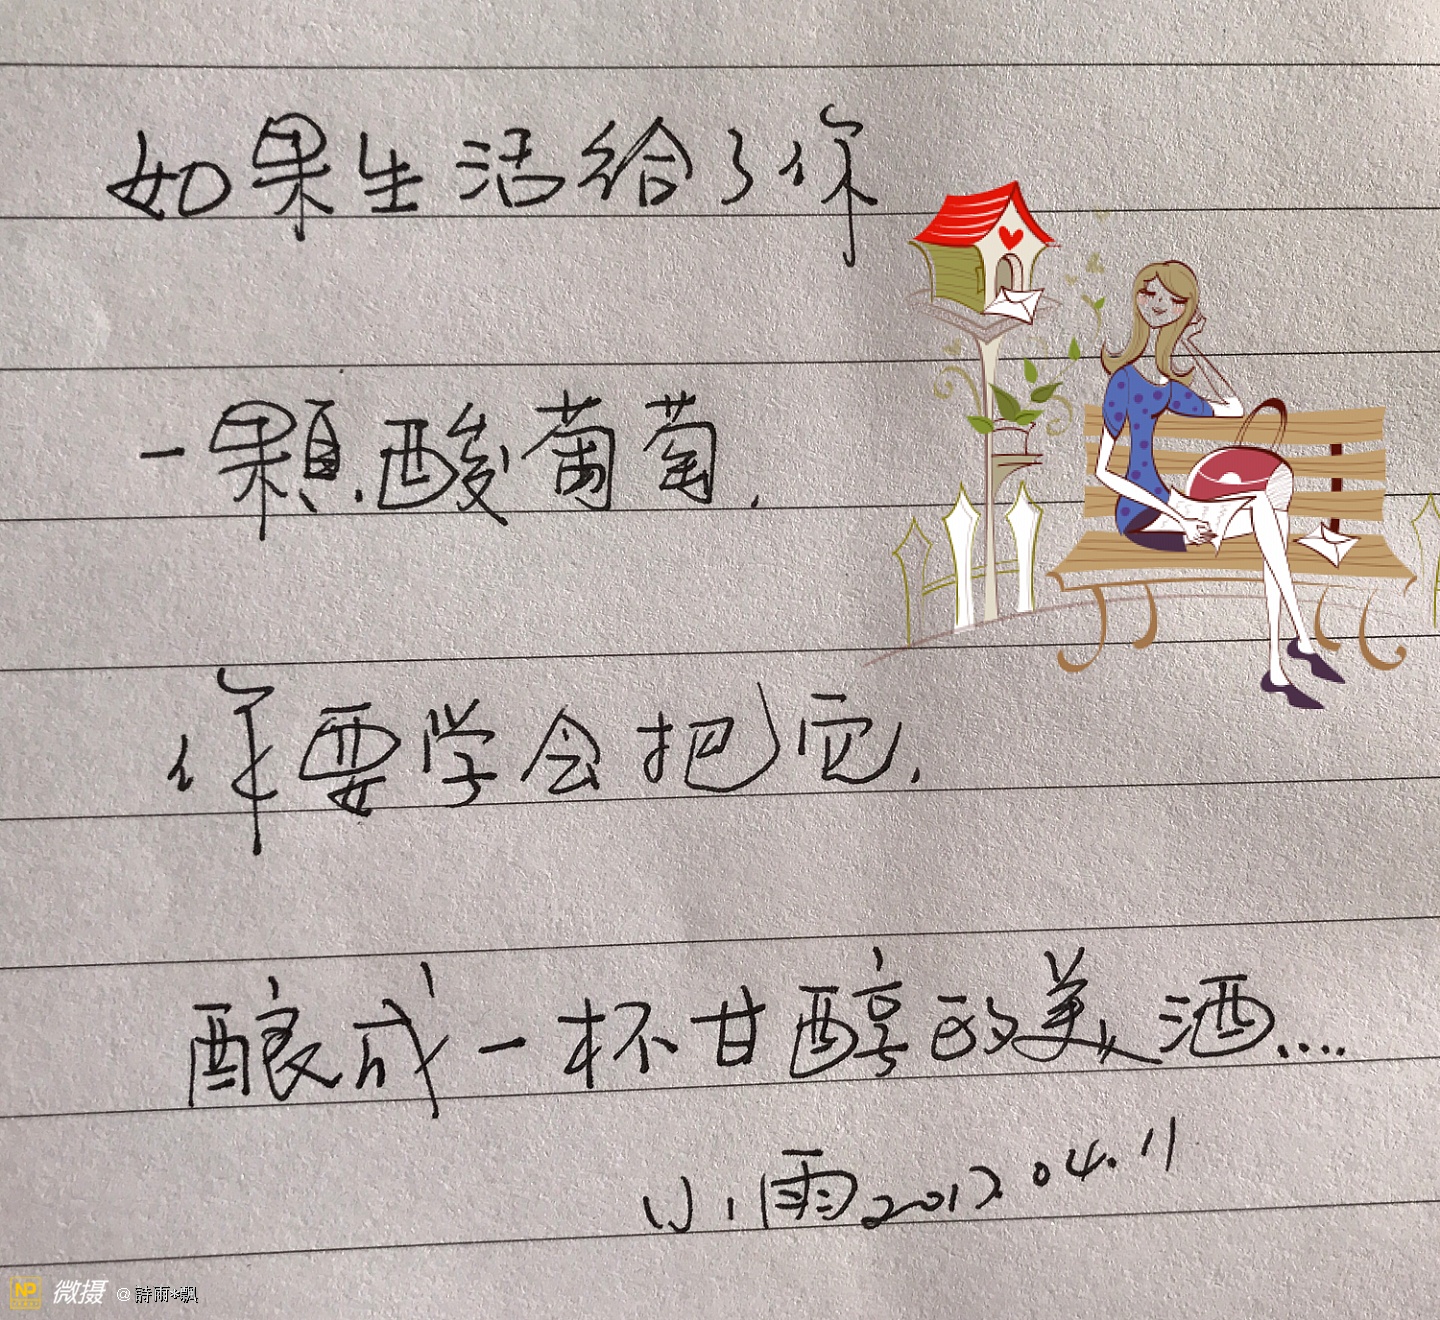 如果生活给了你
一颗酸葡萄,
你要学会把它,
酿成一杯甘醇的美酒....
小雨2017.04.11
NP 微摄 @詩雨*飘